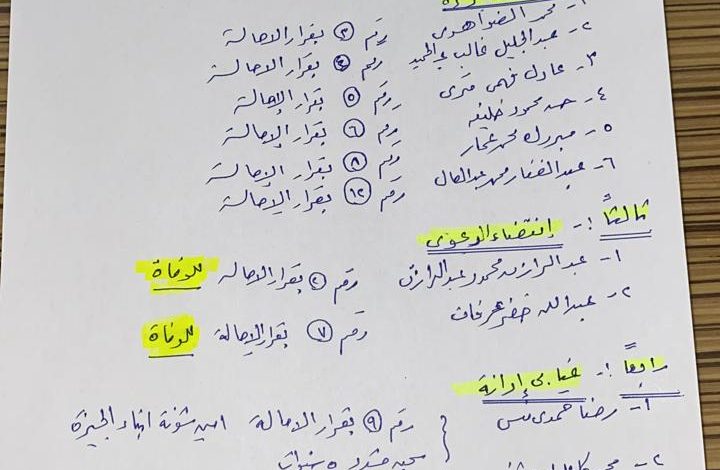 ١- محمد الضواهدى رقم ③ بقرار الإحالة
٢- عبدالجليل غالب رقم ④ بقرار الإحالة
٣- عادل فهمى رقم ⑤ بقرار الإحالة
٤- محمود خليفه رقم ⑥ بقرار الإحالة
٥- مبروك محمد رقم ⑧ بقرار الإحالة
٦- عبدالغفار محمد عبدالعال رقم ⑫ بقرار الإحالة
ثالثاً :- إنقضاء الدعوى
١- عبدالرازق محمود عبدالرازق رقم ② بقرار الإحالة للوفاة
٢- عبدالله خضر عرفات رقم ⑦ بقرار الإحالة للوفاة
رابعاً :- غيابى إدانة
١- رضا حمدى رقم ⑨ بقرار الاحالة امين شونة انبات الجيزة
سجن مشدد ٥ سنوات
٢- محمد